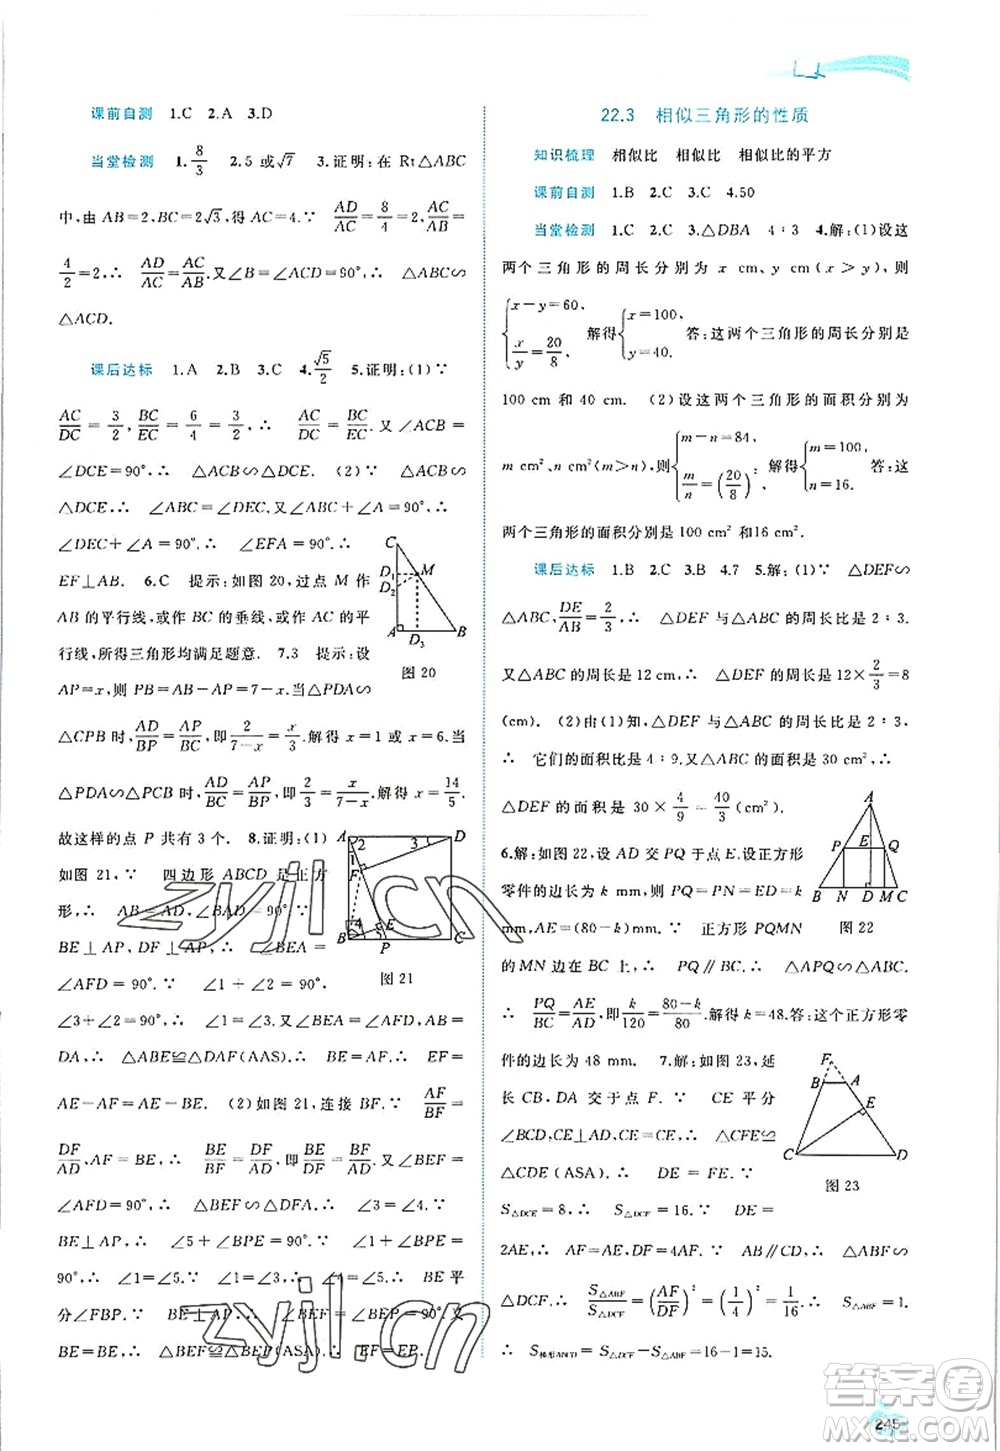 课前自测 1.C 2.A 3.D
当堂检测 1.8/3 2.5 或√7 3.证明:在 Rt△ABC
中,由 AB=2,BC=2√3,得 AC=4.∵ AD/AC=8/4=2,AC/AB=
4/2=2,∴ AD/AC=AC/AB.又∠B=∠DAC=90°,∴ △ABC∽
△ACD.
课后达标 1.A 2.B 3.C 4.√5/2 5.证明:(1)∵
AC/DC=3/2,BC/EC=6/4=3/2,∴ AC/DC=BC/EC.又∠ACB=
∠DCE=90°,∴ △ACB∽△DCE. (2)∵ △ACB∽
△DCE,∴ ∠ABC=∠DEC.又∠ABC+∠A=90°,∴
∠DEC+∠A=90°.∴ ∠EFA=90°.∴
EF⊥AB. 6.C 提示:如图 20,过点 M 作
AB 的平行线,或作 BC 的垂线,或作 AC 的平
行线,所得三角形均满足题意. 7.3 提示:设
AP=x,则 PB=AB-AP=7-x.当△PDA∽
△CPB 时,AD/BP=AP/BC,即2/(7-x)=x/3.解得 x=1 或 x=6.当
△PDA∽△PCB 时,AD/BC=AP/BP,即2/3=x/(7-x).解得 x=14/5.
故这样的点 P 共有 3 个. 8.证明:(1)
如图 21,∵ 四边形 ABCD 是正方
形,∴ AB=AD,∠BAD=90°.∵
BE⊥AP,DF⊥AP,∴ ∠BEA=
∠AFD=90°.∵ ∠1+∠2=90°,
∠3+∠2=90°,∴ ∠1=∠3.又∠BEA=∠AFD,AB=
DA,∴ △ABE≌△DAF(AAS).∴ BE=AF.∴ EF=
AE-AF=AE-BE. (2)如图 21,连接 BF.∵ AF/BF=
DF/AD,AF=BE,∴ BE/BF=DF/AD,即BE/DF=BF/AD.又∠BEF=
∠AFD=90°,∴ △BEF∽△DFA.∴ ∠4=∠3.∵
BE⊥AP,∴ ∠5+∠BPE=90°.∵ ∠1+∠BPE=
90°,∴ ∠1=∠5.∵ ∠1=∠3,∴ ∠4=∠5.∴ BE平
分∠FBP.∵ BE⊥AP,∴ ∠BEF=∠BEP=90°.又
BE=BE,∴ △BEF≌△BEP(ASA).∴ EF=EP.
C
D1
D2
M
A
D3
B
图 20
A
2
3
D
F
1
4
5
E
B
P
C
图 21
22.3 相似三角形的性质
知识梳理 相似比 相似比 相似比的平方
课前自测 1.B 2.C 3.C 4.50
当堂检测 1.C 2.C 3.△DBA 4∶3 4.解:(1)设这
两个三角形的周长分别为 x cm,y cm(x>y),则
{x-y=60, x/y=20/8. 解得{x=100, y=40. 答:这两个三角形的周长分别是
100 cm 和 40 cm. (2)设这两个三角形的面积分别为
m cm²,n cm²(m>n),则{m-n=84, m/n=(20/8)². 解得{m=100, n=16. 答:这
两个三角形的面积分别是 100 cm² 和16 cm².
课后达标 1.B 2.C 3.B 4.7 5.解:(1)∵ △DEF∽
△ABC,DE/AB=2/3,∴ △DEF与△ABC的周长比是 2∶3.
又∵ △ABC 的周长是 12 cm,∴ △DEF 的周长是 12×2/3=8
(cm). (2)由(1)知,△DEF 与△ABC 的周长比为 2∶3,
∴ 它们的面积比是 4∶9.又△ABC 的面积为 30 cm²,∴
△DEF 的面积是 30×4/9=40/3(cm²).
6.解:如图 22,设 AD 交 PQ 于点 E.设正方形
零件的边长为 k mm,则 PQ=PN=ED=k
mm,AE=(80-k)mm.∵ 正方形 PQMN
的 MN 边在 BC 上,∴ PQ∥BC.∴ △APQ∽△ABC.
∴ PQ/BC=AE/AD,即k/120=(80-k)/80.解得 k=48.答:这个正方形零
件的边长为 48 mm. 7.解:如图 23,延
长 CB,DA 交于点 F.∵ CE 平分
∠BCD,CE⊥AD,∴ △CFE≌
△CDE(ASA).∴ DE=FE.∵
S△DCE=8,∴ S△DCF=16.∵ DE=
2AE,∴ AF=AE=1/4DF.∵ AB∥CD,∴ △ABF∽
△DCF.∴ S△ABF/S△DCF=(AF/DF)²=(1/4)²=1/16.∴ S△ABF=1.
∴ S梯形ABCD=S△DCF-S△ABF=16-1=15.
A
P
E
Q
B
N
D
M
C
图 22
F
B
A
E
C
D
图 23
245
zyjl.cn
zyjl.cn
答案圈
MXQE.COM